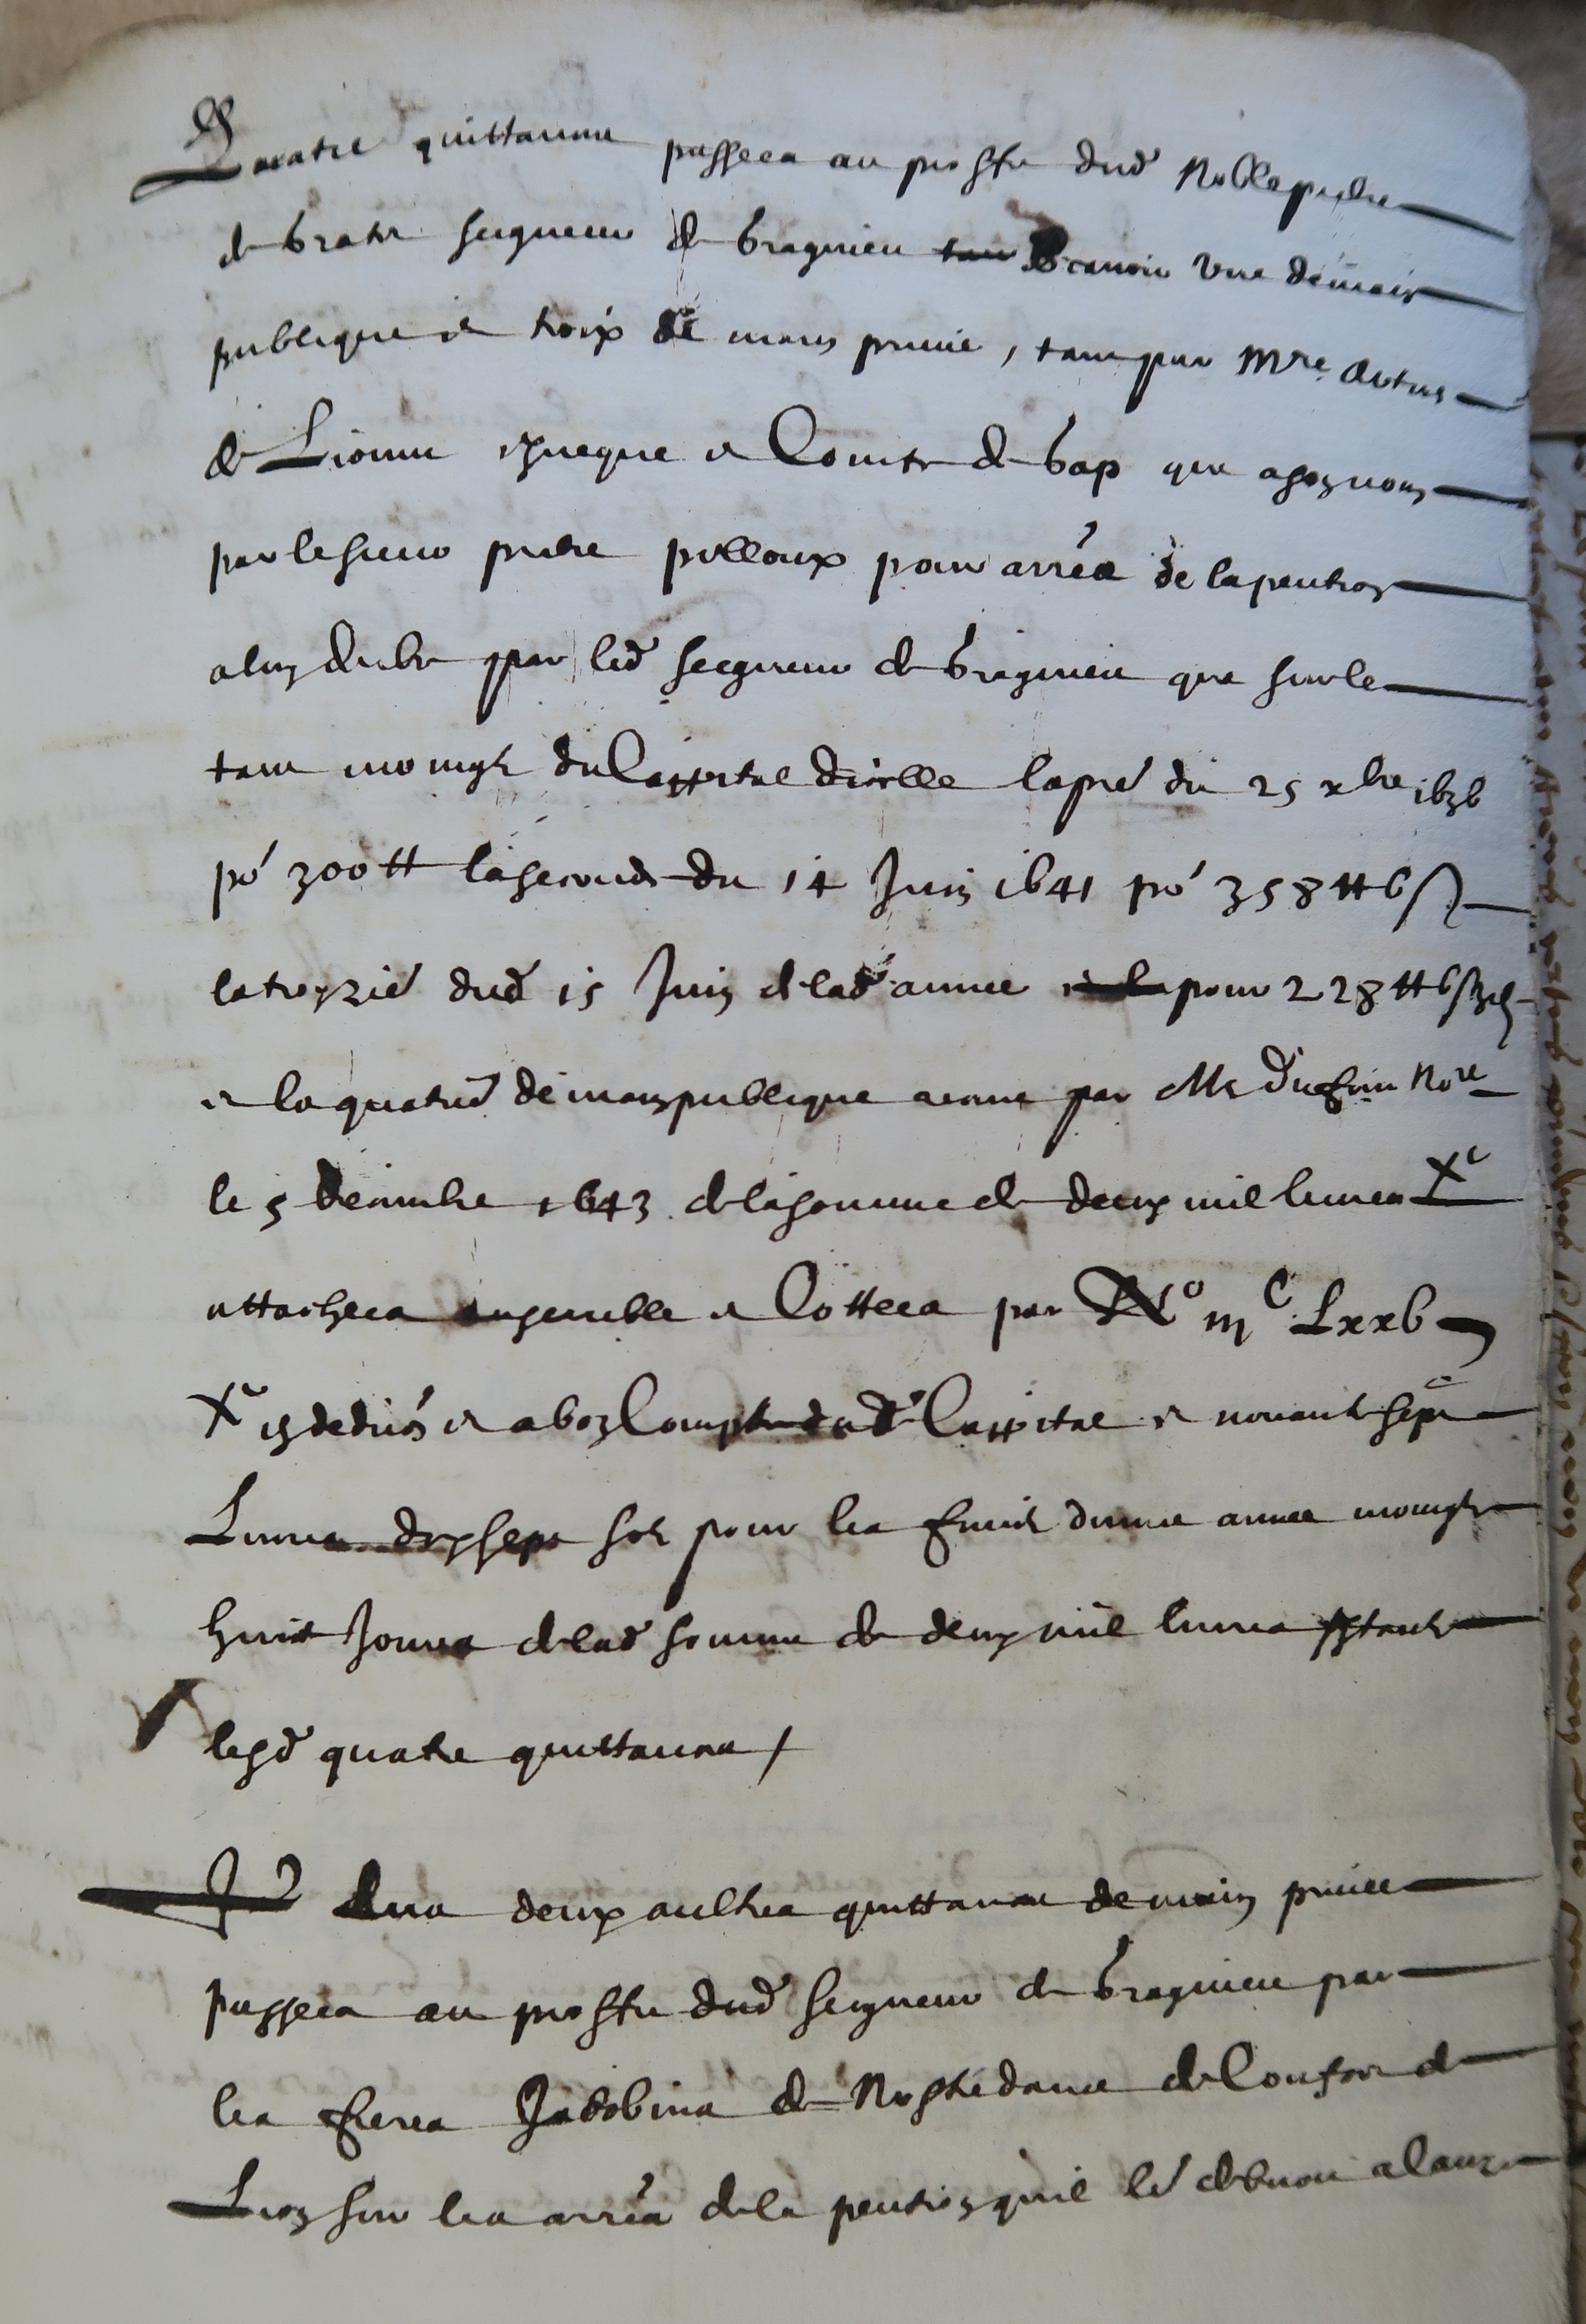 Quatre quittances passees au proffit dud noble pierre
de brates seigneur de bragnieu scavoir une de main
publique et troix de main privée, tant par Mre Artus
de Lionne evesque et Comte de Gap que
par le sieur pierre pelloux pour arréa de la pention
a luy deube par led seigneur de bragnieu que sur et
tant moingz du Cappital dicelle la pre du 25 xbre 1636
po 300 tt la seconde du 14 Juin 1641 po 358 tt 6 s
la troyzie dud 15 Juin de lad annee pour 228 tt 6 s
et la quatrie de main publique receue par Me Nore
le 5 decembre 1643 de la somme de deux mil livres Xe
attachees ensemble et Cottees par No iiic Lxxv
Xe en deduon et a bon Compte dud Cappital et nonante sept
Livres dix sept solz pour les fruictz dunne annee moingz
huict Jours de lad somme de deux mil livres
lesd quatre quittances /
Jt deux aultres quittances de main privee
passees au proffit dud seigneur de bragnieu par
les freres Jacobins de Nostre dame de Confort de
Lion sur les arréa de la pention quil le debvoit